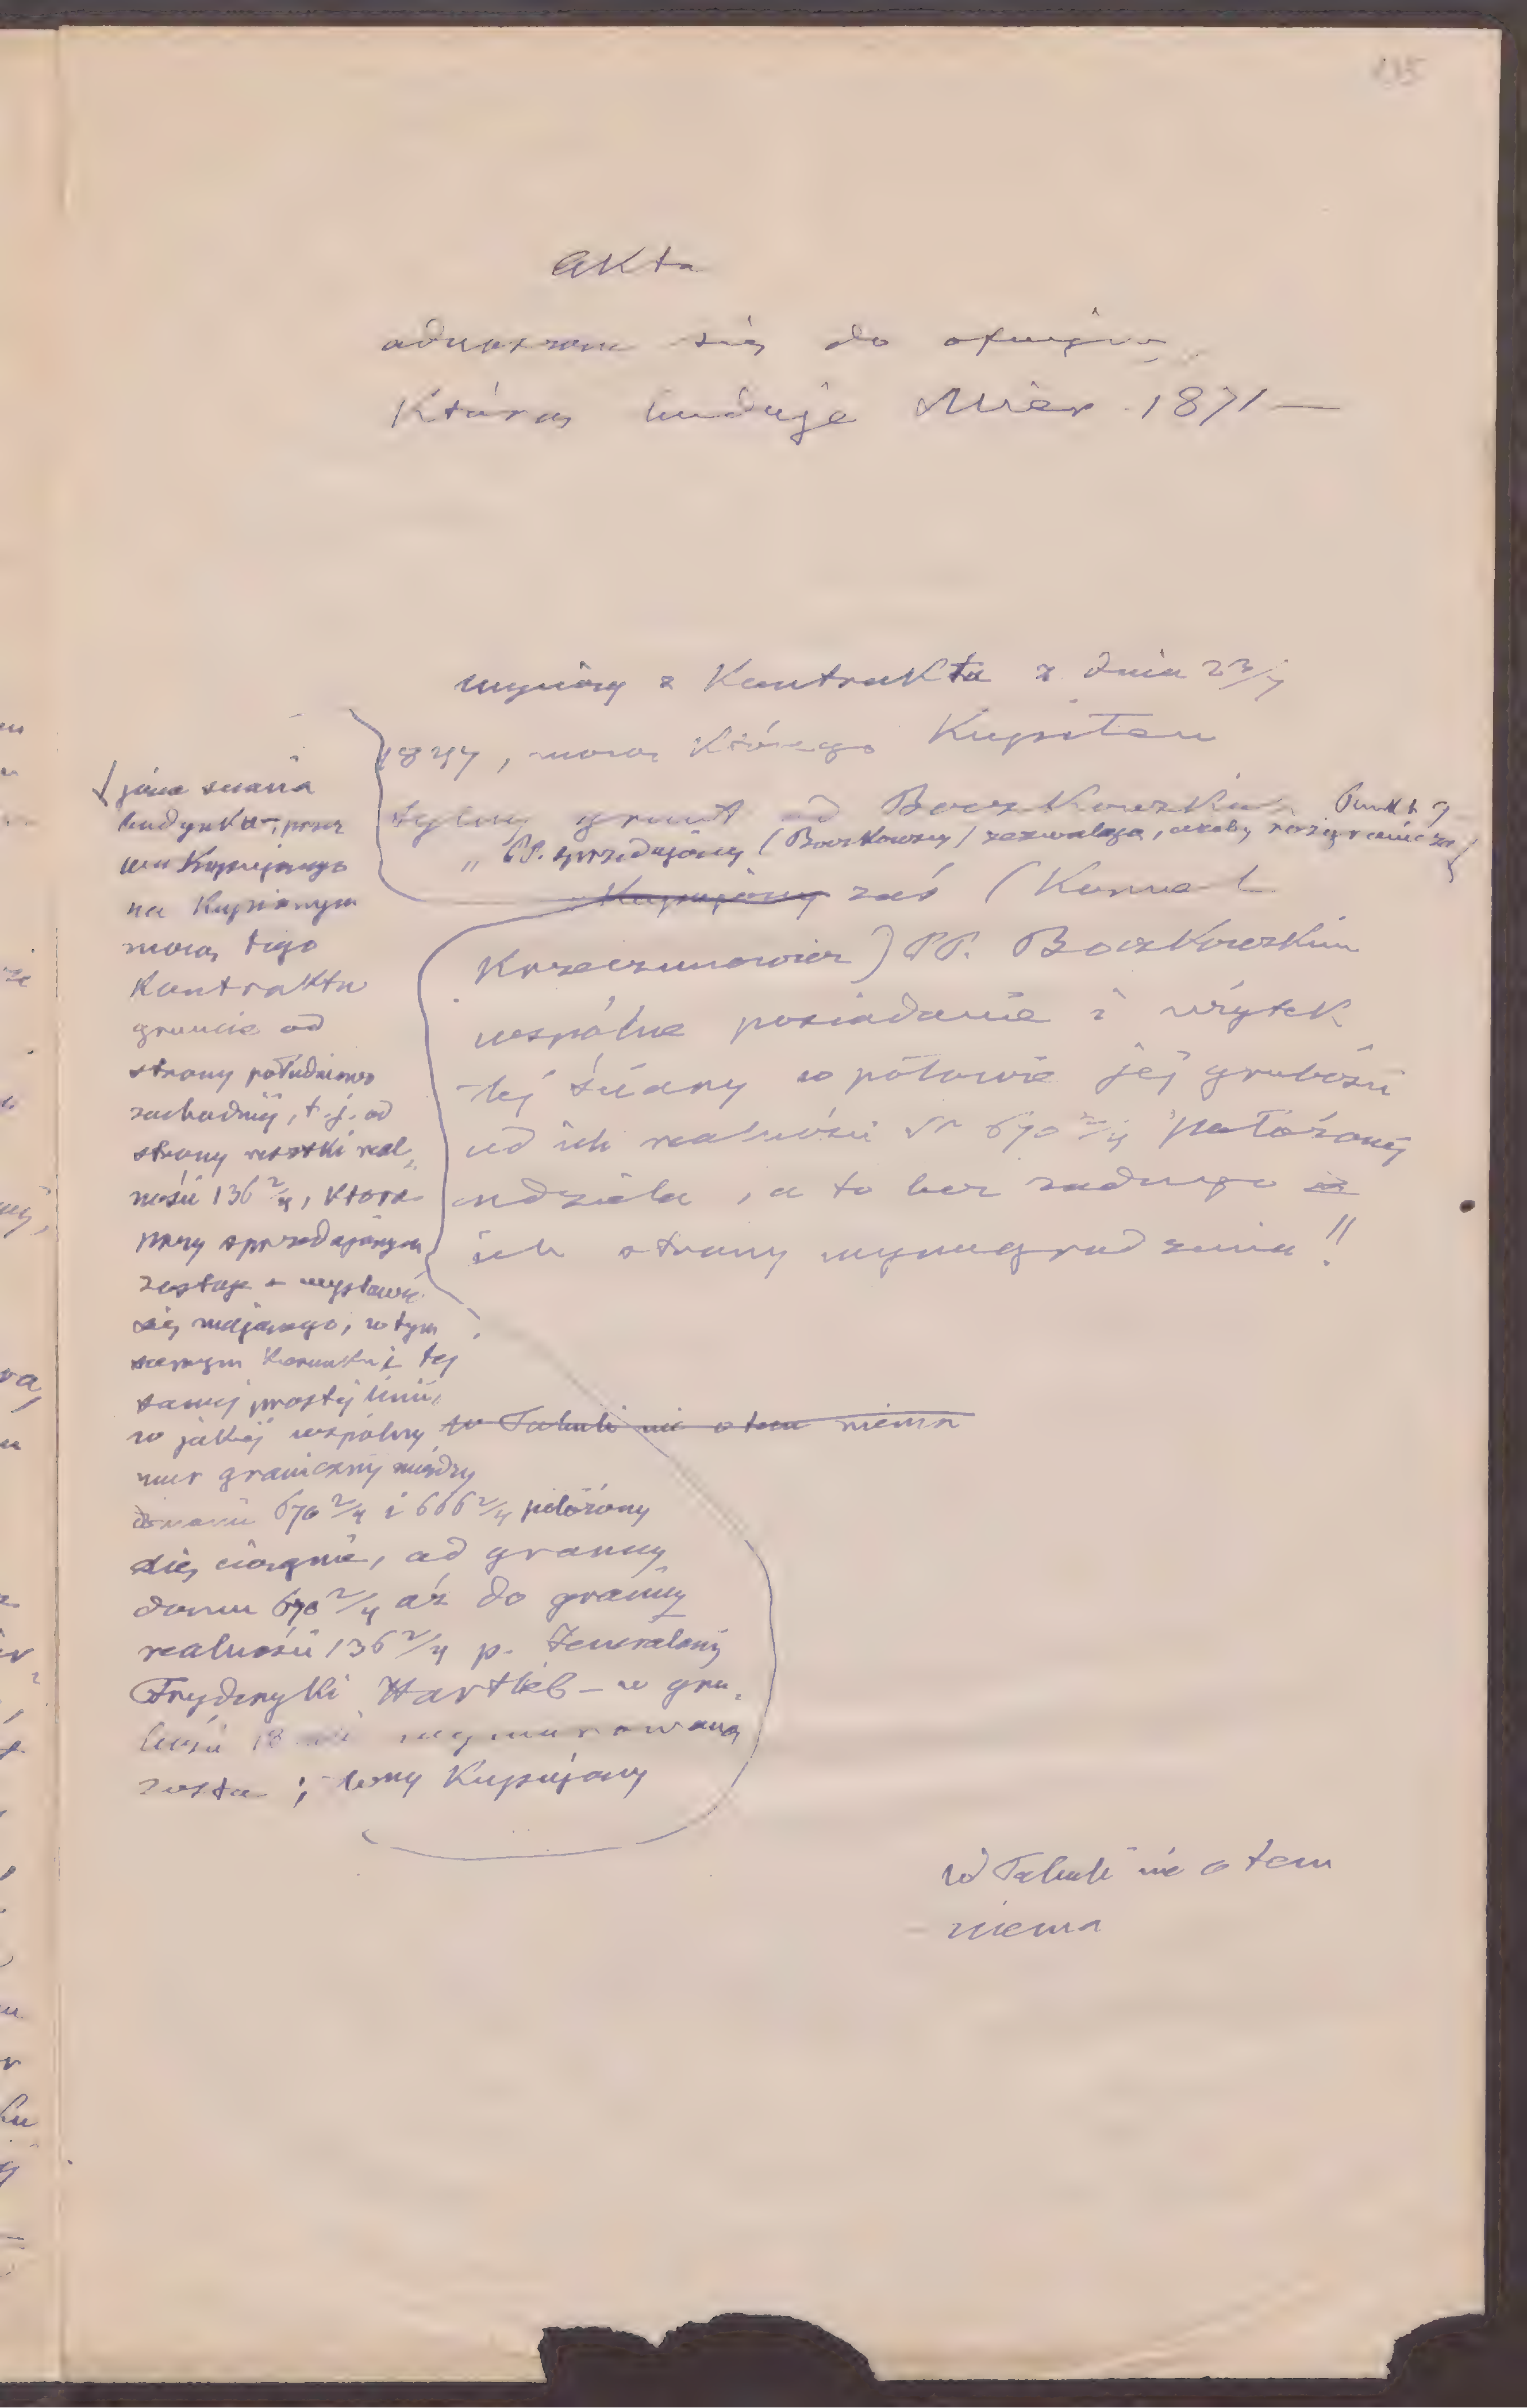 Akta
odnoszące się do oficyny
którą buduje Mier 1871 —
wyciąg z Kontraktu z dnia 23/7
18 , mocą którego Kupiłem
tylny grunt od Boczkowskich Punkt 7
„ PP. Sprzedający (Boczkowscy) zezwalają, ażeby rozgranicza
Kupujący zaś (Kornel
Krzeczunowicz) PP. Boczkowskim
wspólne posiadanie i użytek
tej ściany w połowie jej grubości
od ich realności N 670 2/4 położonej
udziela, a to bez żadnego z
ich strony wynagrodzenia!!
jąca ściana
budynku, przez
Kupującego
na Kupionym
mocą tego
Kontraktu
gruncie od
strony południowo
zachodniej, t. j. od
strony resztki real„
ności 136 2/4, która
przy sprzedającym
zostaje – wystawić
się mającego, w tym
samym kierunku i tej
samej prostej linii,
w jakiej wspólny
mur graniczny między
domami 670 2/4 i 666 2/4 położony
się ciągnie, od granicy
domu 670 2/4 aż do granicy
realności 136 2/4 p. Jenerałowej
Fryderyki Hartlieb – w gru„
bości 18 wymurowaną
została; Kupujący
w Tabuli nic o tem niema
W Tabuli nic o tem
niema